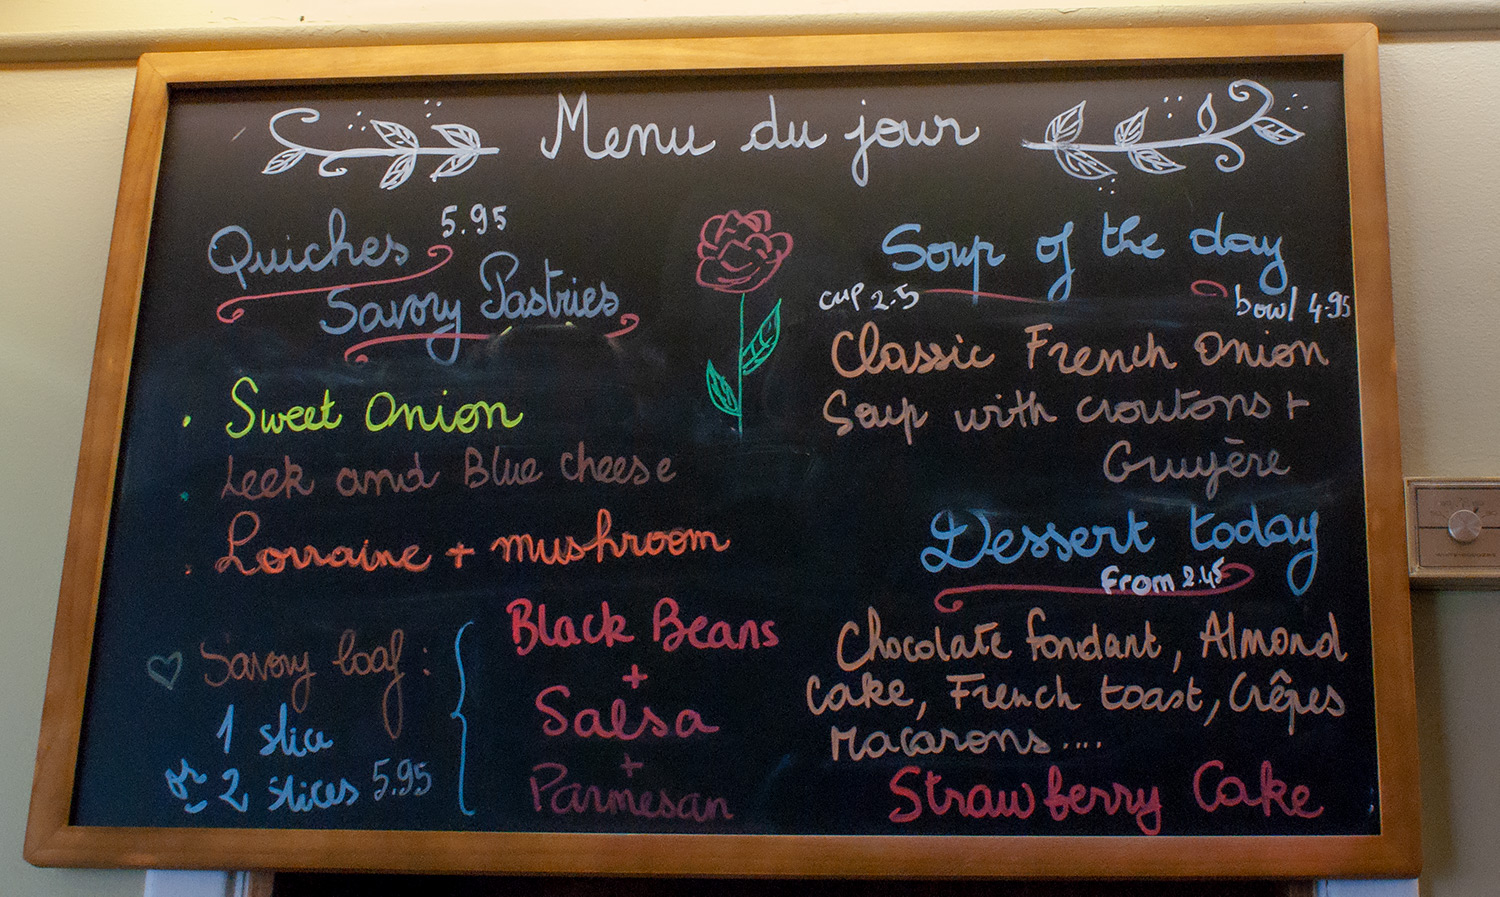 Menu du jour
Quiches 5.95
Savory Pastries
• Sweet Onion
• Leek and Blue cheese
• Lorraine + mushroom
Savory loaf :
1 slice
or 2 slices 5.95
Black Beans
+
Salsa
+
Parmesan
Soup of the day
cup 2.5 bowl 4.95
Classic French Onion
Soup with croutons +
Gruyère
Dessert today
From 2.45
Chocolate fondant, Almond
Cake, French toast, Crêpes
Macarons....
Strawberry Cake